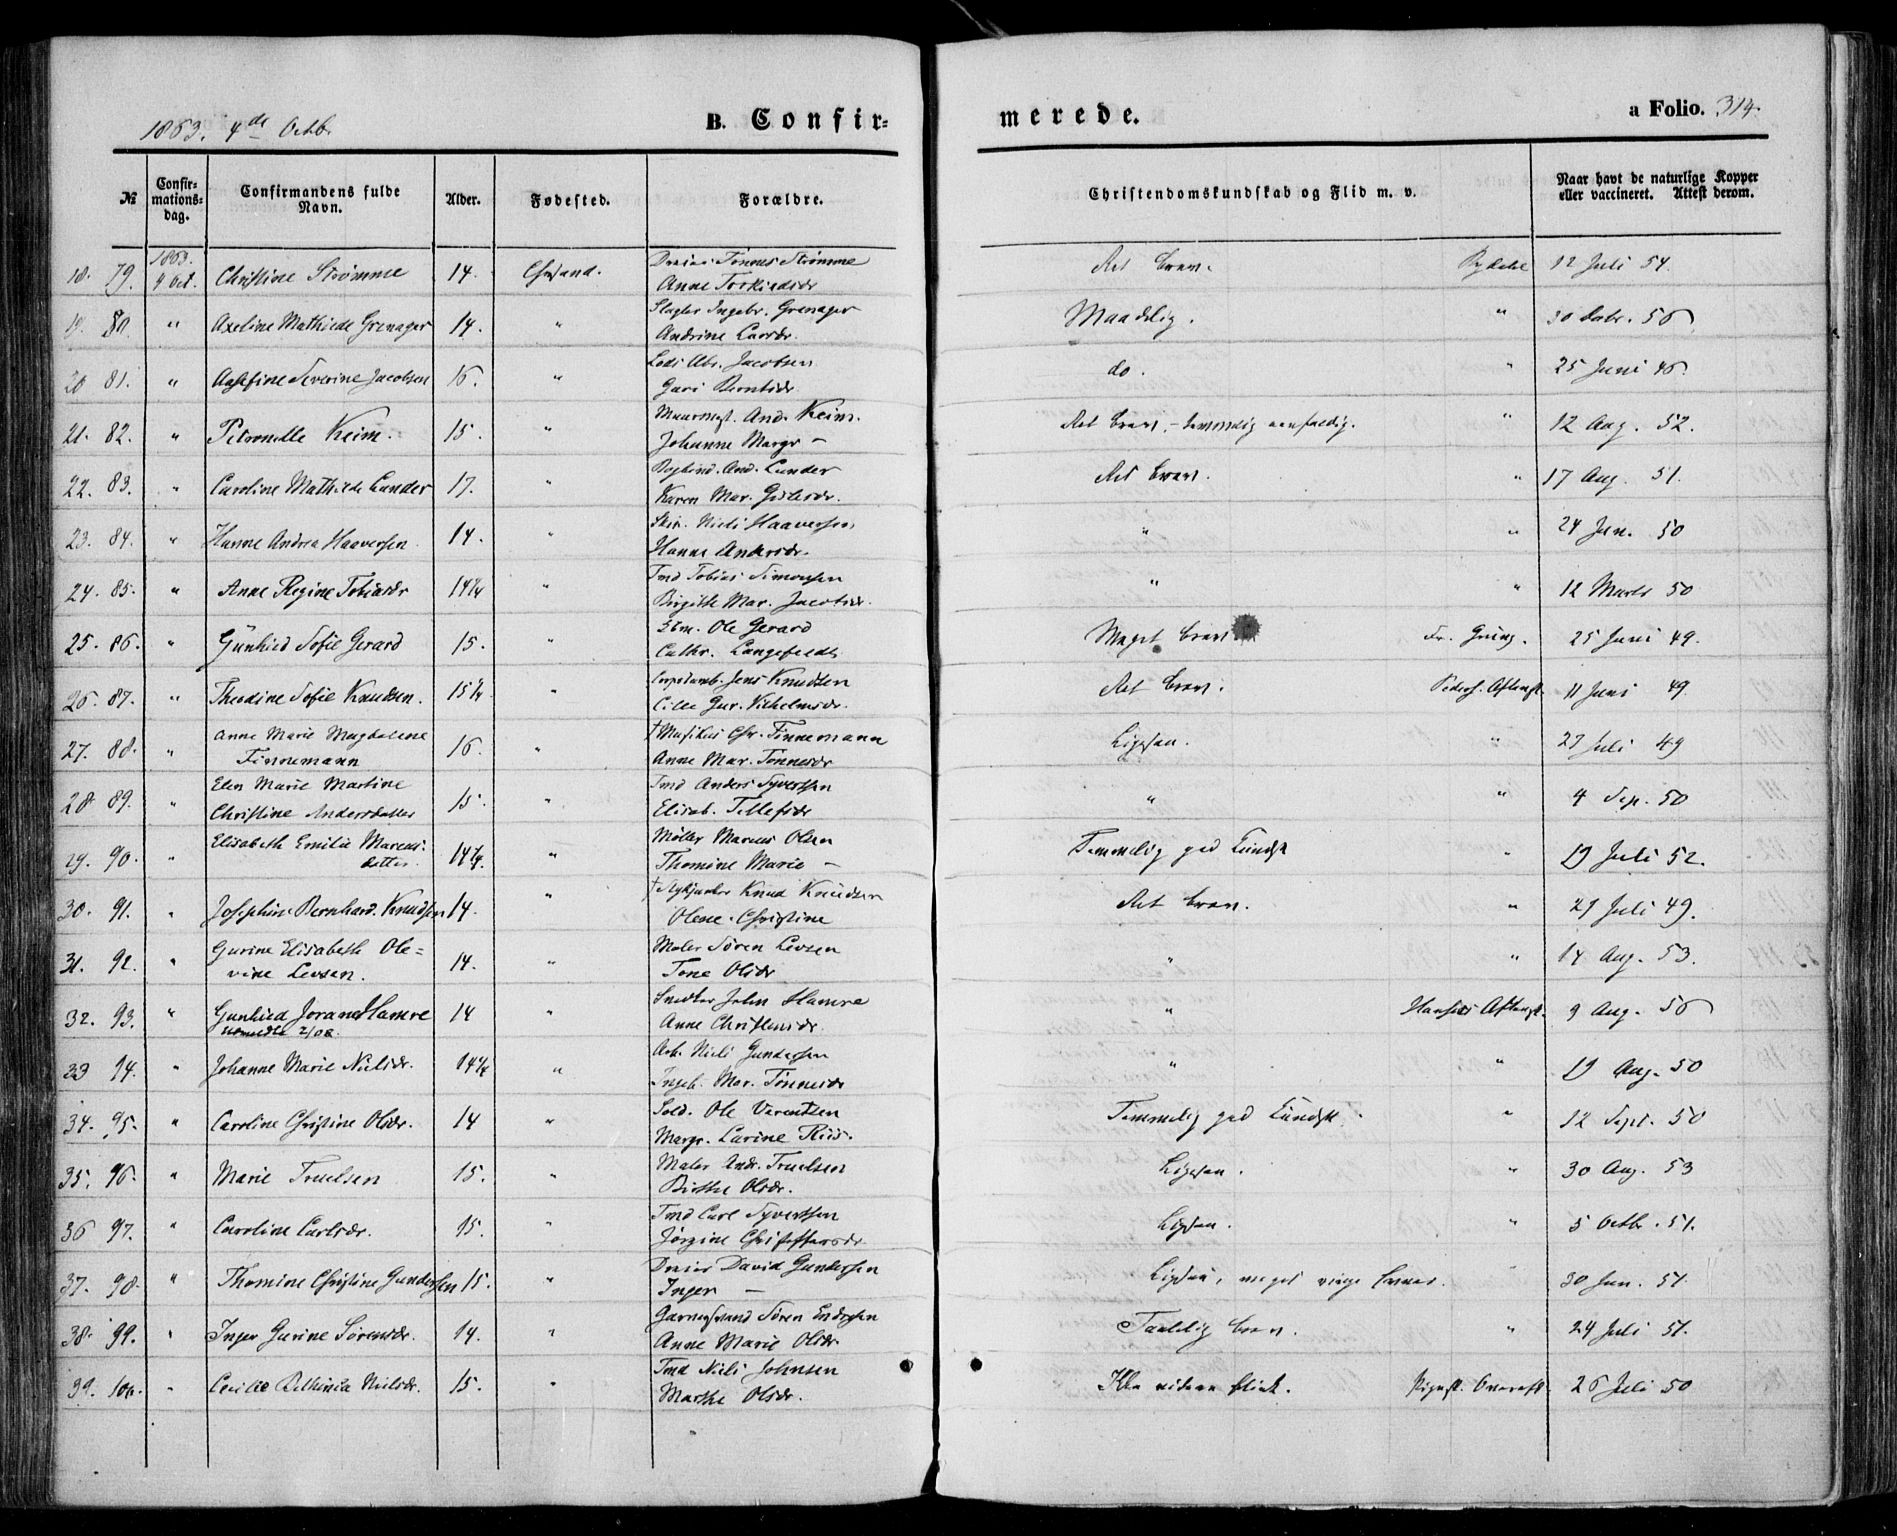 1863. 4de Octb.
B. Confir=
merede.
a Folio. 314.
№
Confir=
mations=
dag.
Confirmandens fulde
Navn.
Alder.
Fødested.
Forældre.
Christendomskundskab og Flid m. v.
Naar havt de naturlige Kopper
eller vaccineret. Attest derom.
18. 79. 1863. 4 Oct. Christine Strømme 14. Chrsand. Tønnes Strømme
Anne Torkildsdr
Ret brav. 12 Juli 54.
19. 80. " Axeline Mathilde Grenager 14. " Slagter Ingebr. Grenager
Andrine Larsdr.
Maadelig. " 30 56
20 81. " Severine Jacobsen 16. " Abr. Jacobsen
Guri Berntsdr.
do. " 25 Juni 46.
21. 82. " Petronelle Keim. 15. " And. Keim.
Johanne Margr —
Ret brav, - temmelig eenfoldig. " 12 Aug. 52.
22. 83. " Caroline Mathilde Lunder 17. " And. Lunder
Karen Mar.
Ret brav. " 17 Aug. 51.
23. 84. " Hanne Andrea Haaversen 14. " Niels Haaversen
Hanne Andersdr.
" " 24 Jun. 50
24. 85. " Anne Regine Tobiasdr 14½ " Tmd Tobias Simonsen
Birgitte Mar. Jacobsdr.
" " 12 Marts 50
25. 86. " Gunhild Sofie Gerard 15. " Ole Gerard
Cathr. Langefeldt
Meget brav Fr. 25 Juni 49.
26. 87. " Theodine Sofie Knudsen. 15½ " Jens Knudsen
Gur. Vilhelmsdr.
Ret brav. 11 Juni 49
27. 88. " Anne Marie Magdalene
Finnemann
16. " † Musikus Chr. Finnemann
Anne Mar. Tønnesdr
Ligesaa. " 27 Juli 49
28. 89. " Elen Marie Martine
Christine Andersdatter
15. " Tmd Anders Syvertsen
Elisab. Tellefsdr
" " 4 Sep. 50
29. 90. " Elisabeth Emilie Marcus-
datter
14½. " Møller Marcus Olsen
Thomine Marie —
Temmelig god Kundsk " 19 Juli 52.
30. 91. " Josephine Bernhard. Knudsen 14. " † Knud Knudsen
Olene Christine
Ret brav. " 27 Juli 49.
31. 92. " Gurine Elisabeth Ole-
vine Levsen.
14. " Maler Søren Levsen
Tone Olsdr
" " 14 Aug. 53.
32. 93. " Gunhild Jorane Hamre 14 " Snedker John Hamre
Anne Christensdr
" Hansens 9 Aug. 56
33 94. " Johanne Marie Nielsdr. 14½ " Arb. Niels Gundersen
Ingeb. Mar. Tønnesdr
" " 19 Aug. 50
34. 95. " Caroline Christine Olsdr. 14 " Sold. Ole Berentzen
Margr. Larine Riis.
Temmelig god Kundsk. " 12 Sept. 50
35. 96. " Marie Truelsen 15. " Maler Andr. Truelsen
Birthe Olsdr.
Ligesaa. " 30 Aug. 53
36 97. " Caroline Carlsdr. 15. " Tmd Carl Syvertsen
Jørgine Christoffersdr.
Ligesaa. " 5 Octb. 51.
37. 98. " Thomine Christine Gundersen 15. " David Gundersen
Inger —
Ligesaa, meget 30 Jun. 51.
38. 99. " Inger Gurine Sørensdr. 14. " Søren Endresen
Anne Marie Olsdr
Taalelig brav. " 24 Juli 51.
39. 100. " Cecilie Bethinia Nielsdr. 15. " Tmd Niels Johnsen
Marthe Olsdr.
Ikke videre flink. 26 Juli 50